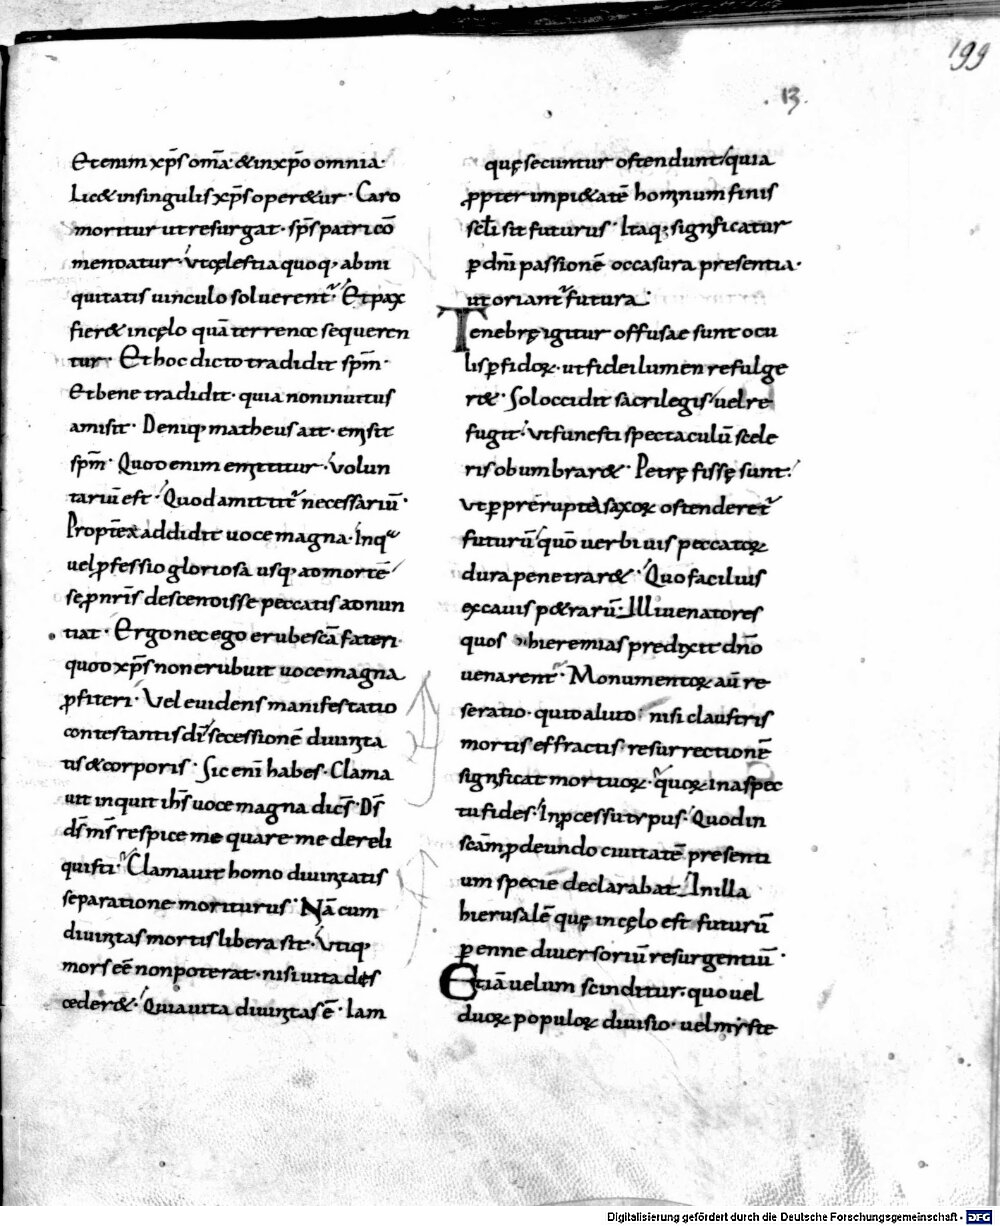 199
13
Etenim xp̄s om̄a· & in xp̄o omnia·
Lic& in singulis xp̄s oper&ur· Caro
moritur ut resurgat· sp̄s patri cō
mendatur· Vt cęlestia quoq; ab ini
quitatis uinculo soluerent᷑· Et pax
fier& in cęlo quā terrence sequeren
tur· Et hoc dicto tradidit sp̄m·
Et bene tradidit· quia non inuitus
amisit· Deniq; matheus ait· emisit
sp̄m· Quod enim emittitur· volun
tariū est· Quod amittit᷑ necessariū·
Propt̄ea addidit uoce magna· Inq
uel p̱fessio gloriosa usq; ad mortē
se p̱ nr̄is descendisse peccatis adnun
tiat· Ergo nec ego erubescā fateri·
quod xp̄s non erubuit uoce magna
p̱fiteri· Vel euidens manifestatio
contestantis dī secessionē diuinita
tis & corporis· Sic enī habes· Clama
uit inquit ih̄s uoce magna dicēs· Ds̄
ds̄ ms̄ respice me quare me dereli
quisti· Clamauit homo diuinitatis
separatione moriturus· Nā cum
diuinitas mortis libera sit· Vtiq;
mors eē non poterat· nisi uita dis
ceder&· Quia uita diuinitas ē· Iam
quę secuntur ostendunt/ quia
p̱pter impi&atē hominum finis
scl̄i sit futurus· Itaq; significatur
ꝑ dn̄i passionē occasura presentia·
ut oriant᷑ futura·
Tenebrę igitur offusae sunt ocu
lis ꝑfidoꝝ· ut fidei lumen refulge
r&· Sol occidit sacrilegis/ uel re
fugit· Vt funesti spectaculū scele
ris obumbrar&· Petrę fissę sunt·
vt ꝑ prērupta saxoꝝ ostenderet᷑
futurū/ quō uerbi uis peccatoꝝ
dura penetrar&· Quo facilius
excauis p&rarū· Illi uenatores
quos hieremias predixit dn̄o
uenarent᷑· Monumentoꝝ aū re
seratio· quid aliud· nisi claustris
mortis effractis· resurrectionē
significat mortuoꝝ· quoꝝ in aspec
tu fides· In p̱cessu typus· Quod in
scām p̱deundo ciuitatē presenti
um speciē declarabat· In illa
hierusalē quę in cęlo est futurū
ꝑenne diuersoriū resurgentiū·
Etiā uelum scinditur· quo uel
duoꝝ populoꝝ diuisio· uel myste
Digitalisierung gefördert durch die Deutsche Forschungsgemeinschaft - DFG